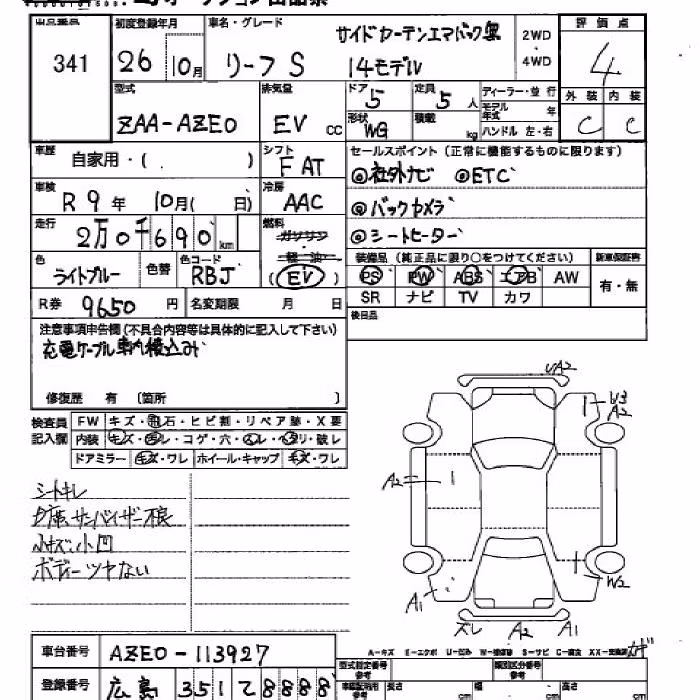 出品番号 初度登録年月 車名・グレード サイドカーテンエアバック無 2WD・4WD 評価点
341 26 10月 リーフS 14モデル 4
型式 排気量 ドア 5 定員 5人 ディーラー・並行 外装 内装
ZAA-AZE0 EV CC 形状 WG 積載 kg モデル年式 年 C C
ハンドル 左・右
車歴 自家用・( ) シフト FAT セールスポイント(正常に機能するものに限ります)
車検 R9年 10月( 日) 冷房 AAC ◎社外ナビ ◎ETC
走行 2万0千690km 燃料 ガソリン・軽油・EV ◎バックカメラ
◎シートヒーター
色 ライトブルー 色替 色コード RBJ 装備品(純正品に限り○をつけてください) 新車保証書
PS PW ABS エアB AW 有・無
R券 9650円 名変期限 月 日 SR ナビ TV カワ
注意事項申告欄(不具合内容等は具体的に記入して下さい) 後日品
充電ケーブル車内積込み
修復歴 有 〔箇所 〕
検査員記入欄 FW キズ・飛石・ヒビ割・リペア跡・X要
内装 キズ・汚レ・コゲ・穴・スレ・ヘタリ・破レ
ドアミラー キズ・ワレ ホイール・キャップ キズ・ワレ
シートキレ
サンバイザー不良
小キズ・小凹
ボディーツヤない
A2
W3
A2
A2
W2
A1
ズレ A2 A1
A-キズ E-エクボ U-凹ミ W-補修跡 S-サビ C-腐食
車台番号 AZE0-113927 型式指定番号 参考 類別区分番号 参考
登録番号 広島 351 て 8888 長さ cm 幅 cm 高さ cm